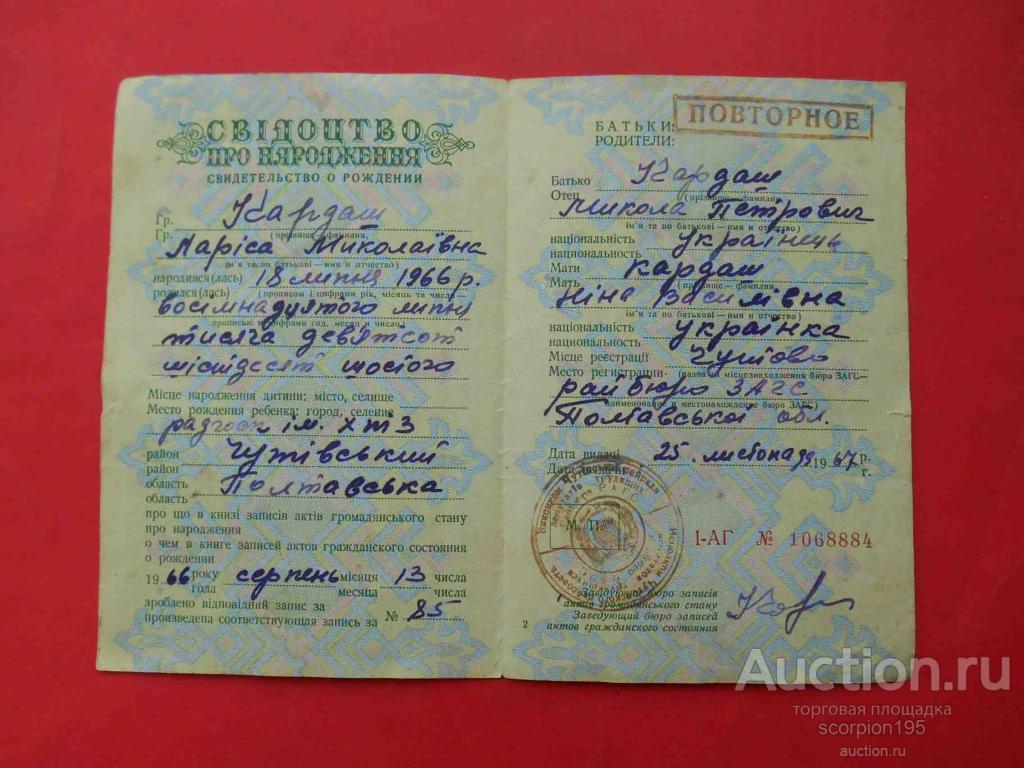 СВІДОЦТВО
ПРО НАРОДЖЕННЯ
СВИДЕТЕЛЬСТВО О РОЖДЕНИИ
Гр. Кардаш
Гр. (прізвище—фамилия,
Лариса Миколаївна
ім'я та по батькові—имя и отчество)
народився(лась) 18 липня 1966 р.
родился(лась) (прописом і цифрами рік, місяць та число
восімнадцятого липня
прописью и цифрами год, месяц и число)
тисяча девятсот
шістдесят шостого
Місце народження дитини; місто, селище
Место рождения ребенка: город, селение
радгосп ім. ХТЗ
район Чутівський
район
область Полтавська
область
про що в книзі записів актів громадянського стану
про народження
о чем в книге записей актов гражданского состояния
о рождении
1966 року серпень місяця 13 числа
года месяца числа
зроблено відповідний запис за
произведена соответствующая запись за № 85
ПОВТОРНОЕ
БАТЬКИ:
РОДИТЕЛИ:
Батько Кардаш
Отец (прізвище—фамилия,
Микола Петрович
ім'я та по батькові—имя и отчество)
національність українець
национальность
Мати Кардаш
Мать (прізвище—фамилия,
Ніна Василівна
ім'я та по батькові—имя и отчество)
національність українка
национальность
Місце реєстрації Чутово
Место регистрации (назва та місцезнаходження бюро ЗАГС—
райбюро ЗАГС
наименование и местонахождение бюро ЗАГС)
Полтавської обл.
Дата видачі 25 листопада 1967 р.
Дата выдачи г.
М. П.
I-АГ № 1068884
Завідуючий бюро записів
актів громадянського стану
Заведующий бюро записей
актов гражданского состояния
2
Auction.ru
торговая площадка
scorpion195
auction.ru